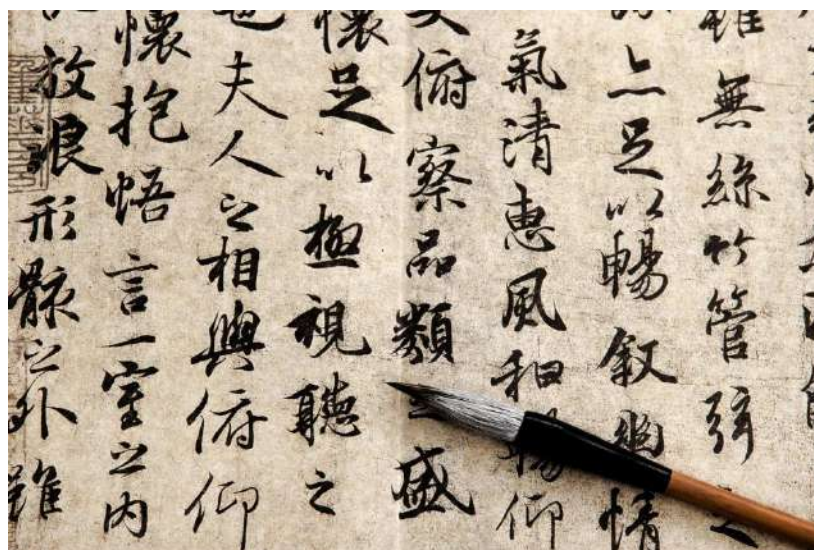 雖無絲竹管弦之
亦足以暢叙幽情
氣清惠風和暢仰
大俯察品類之盛
懷足以極視聽之
也夫人之相與俯仰
懷抱悟言一室之内
放浪形骸之外雖